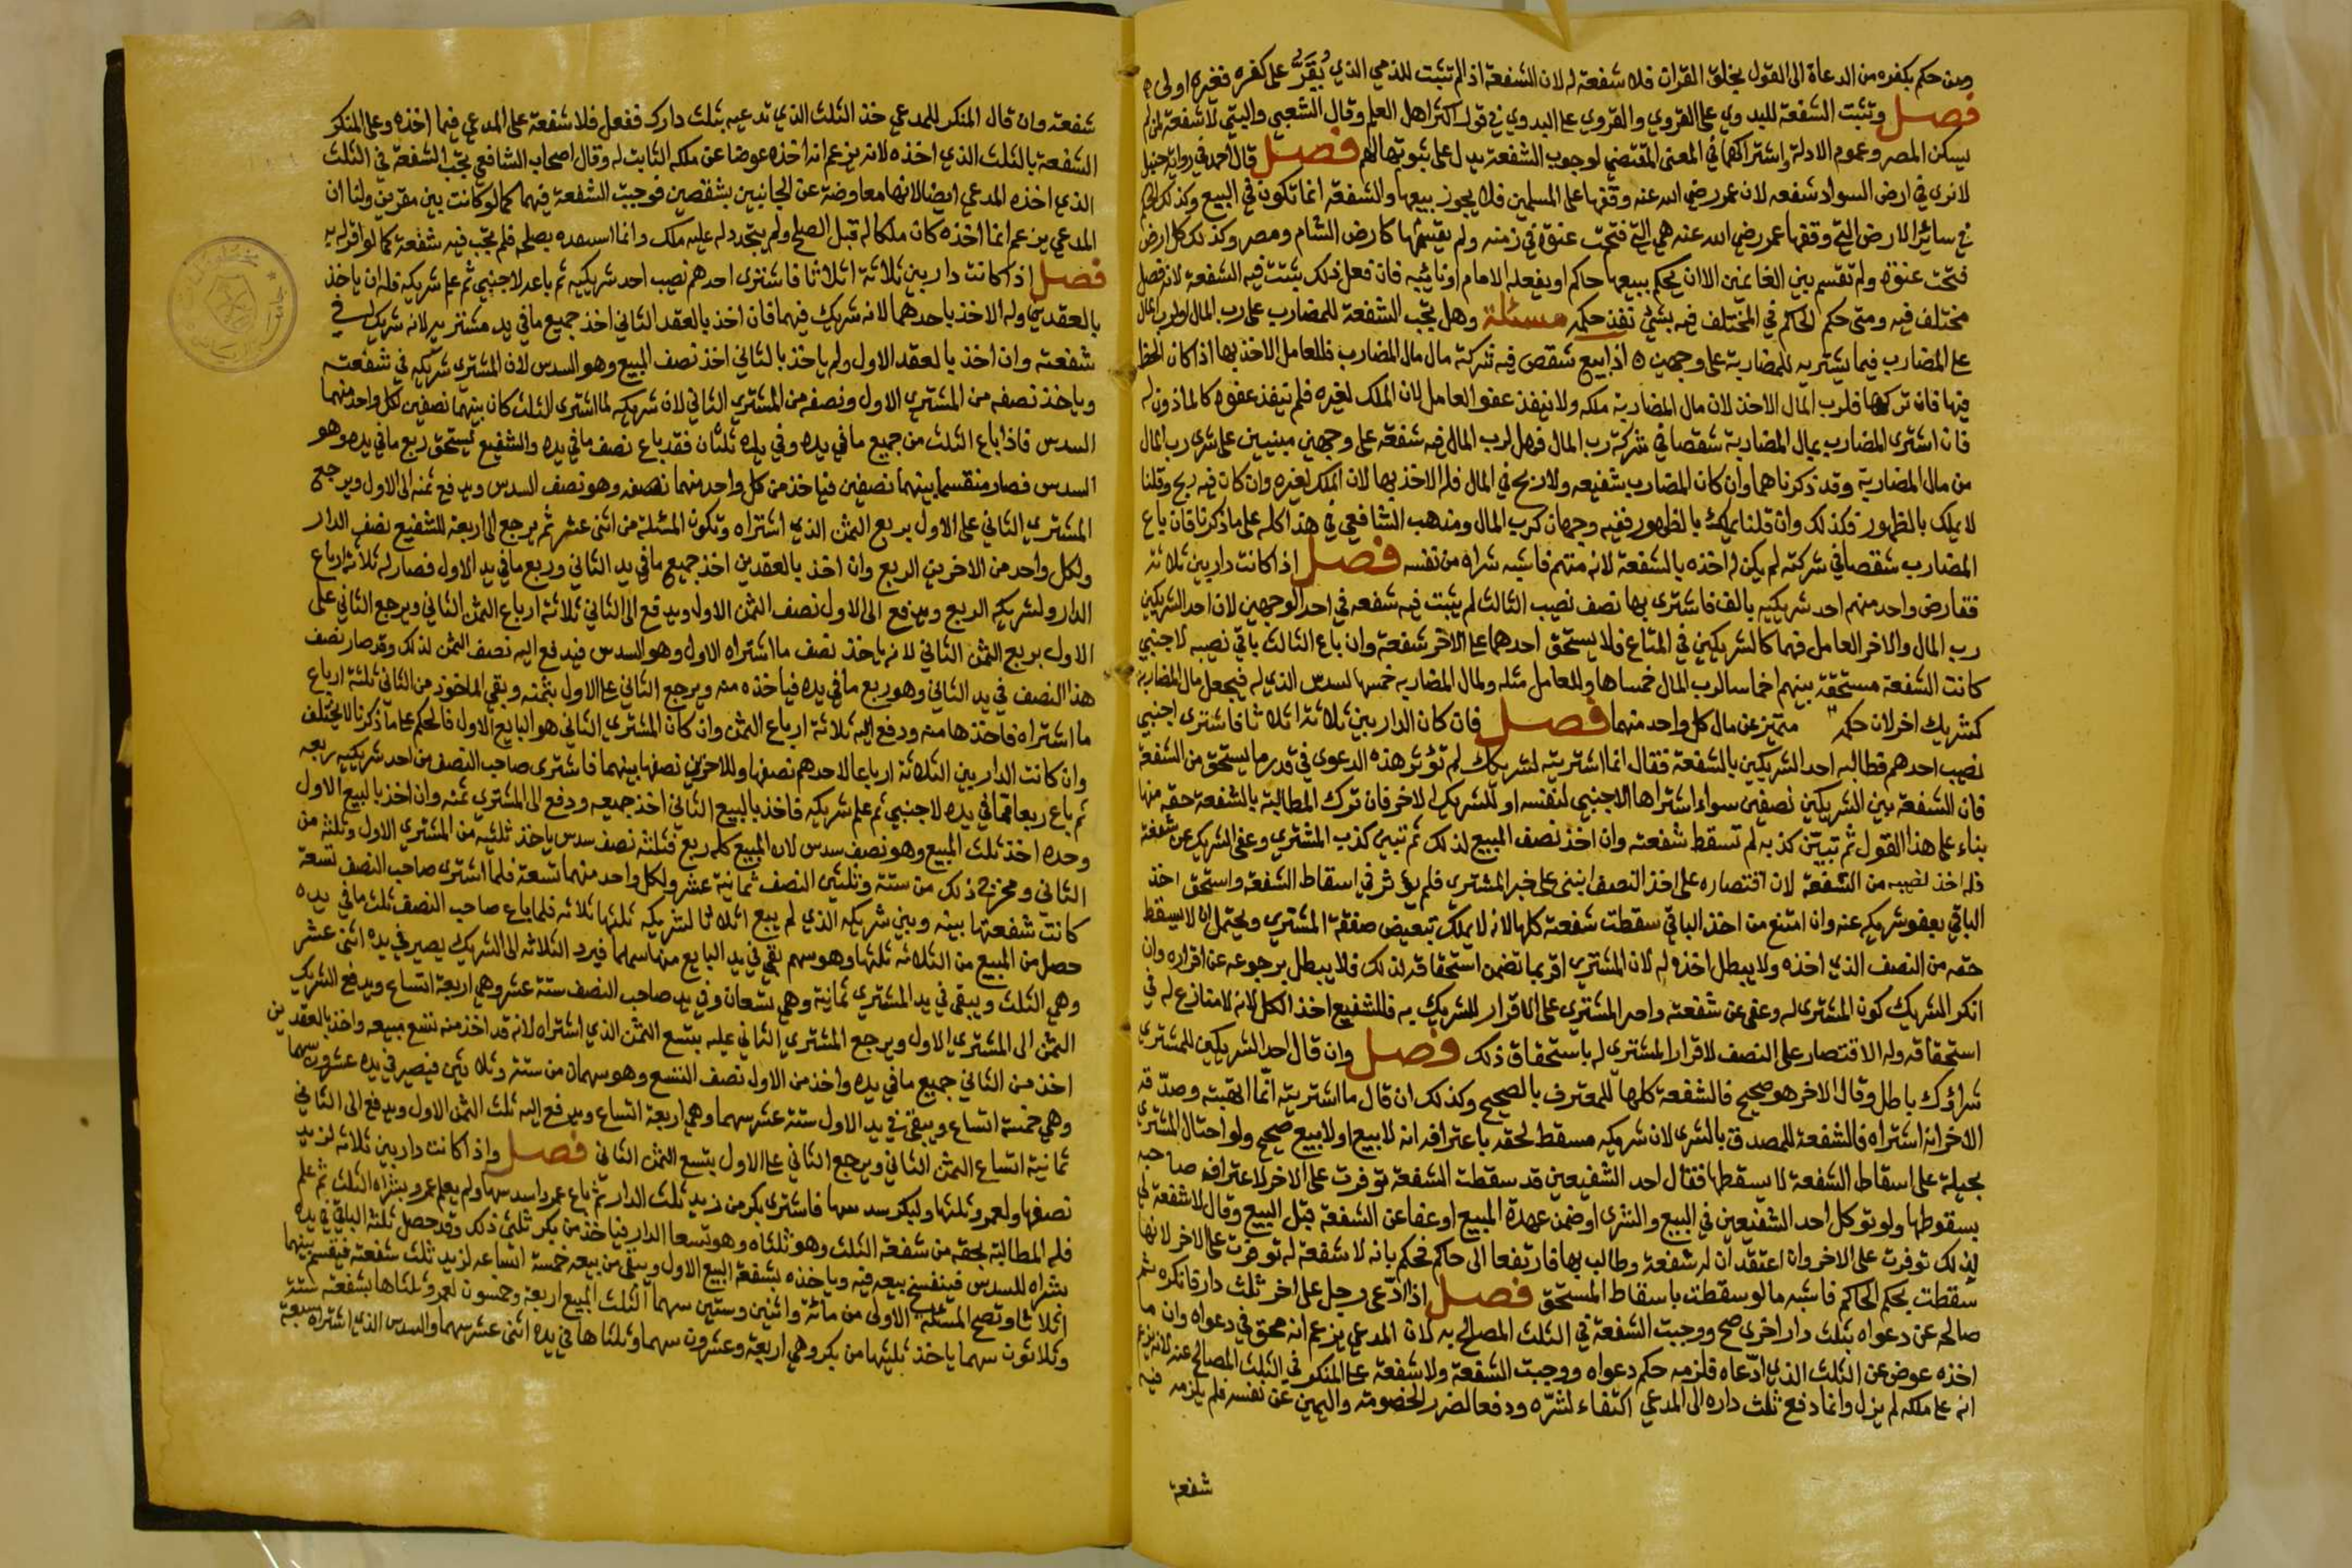 ومن حكم بكفره من الدعاة الى القول بخلق القران فلا شفعة له لان الشفعة اذا لم تثبت للذمي الذي يُقَرّ على كفره فغيره اولى
فصل وتثبت الشفعة للبدوي على القروي والقروي على البدوي في قول اكثر اهل العلم وقال الشعبي والبتي لا شفعة لمن لم
يسكن المصر وعموم الادلة واشتراكهما في المعنى المقتضي لوجوب الشفعة يدل على ثبوتها لهم فصل قال احمد في رواية حنبل
لا نرى في ارض السواد شفعه لان عمر رضي الله عنه وقفها على المسلمين فلا يجوز بيعها والشفعة انما تكون في البيع وكذلك
في سائر الارض التي وقفها عمر رضي الله عنه هي التي فتحت عنوة في زمنه ولم يقسمها كارض الشام ومصر وكذلك كل ارض
فتحت عنوة ولم تقسم بين الغانمين الا ان يحكم ببيعها حاكم او يفعله الامام او نائبه فان فعل ذلك تثبت فيه الشفعة لانه فصل
مختلف فيه ومتى حكم الحاكم في المختلف فيه بشئ نفذ حكمه مسئلة وهل تجب الشفعة للمضارب على رب المال او لرب المال
على المضارب فيما يشتريه للمضاربة على وجهين اذا بيع شقص فيه شركة مال مال المضارب فللعامل الاخذ بها اذا كان الحظ
فيها فان تركها فلرب المال الاخذ لان مال المضاربة ملكه ولا ينفذ عفو العامل لان الملك لغيره فلم ينفذ عفوه كالماذون له
فان اشترى المضارب بمال المضاربة شقصا في شركة رب المال فهل لرب المال فيه شفعة على وجهين مبنيين على شرى رب المال
من مال المضاربة وقد ذكرناهما وان كان المضارب شفيعه ولا ربح في المال فله الاخذ بها لان الملك لغيره وان كان فيه ربح وقلنا
لا يملك بالظهور فكذلك وان قلنا يملك بالظهور ففيه وجهان كرب المال ومذهب الشافعي في هذا كله على ما ذكرنا فان باع
المضارب شقصا في شركته لم يكن له اخذه بالشفعة لانه متهم فاشبه شراه من نفسه فصل اذا كانت دار بين ثلاثة
فقارض واحد منهم احد شريكيه بالف فاشترى بها نصف نصيب الثالث لم يثبت فيه شفعه في احد الوجهين لان احد الشريكين
رب المال والاخر العامل فهما كالشريكين في المتاع فلا يستحق احدهما على الاخر شفعة وان باع الثالث باقي نصيبه لاجنبي
كانت الشفعة مستحقة بينهم اخماسا لرب المال خمساها وللعامل مثله ولمال المضاربه خمسها لسدس الذي له فيجعل مال المضاربة
كشريك اخر لان حكمه متميز عن مال كل واحد منهما فصل فان كان الدار بين ثلاثة اثلاثا فاشترى اجنبي
نصيب احدهم فطالبه احد الشريكين بالشفعة فقال انما اشتريته لشريكك لم تؤثر هذه الدعوى في قدر ما يستحق من الشفعة
فان الشفعة بين الشريكين نصفين سواء اشتراها الاجنبي لنفسه او للشريك الاخر فان ترك المطالبة بالشفعة حقه منها
بناء على هذا القول ثم تبين كذبه لم تسقط شفعته وان اخذ نصف المبيع لذلك ثم تبين كذب المشتري وعفى الشريك عن شفعته
فله اخذ نصيبه من الشفعة لان اقتصاره على اخذ النصف انبنى على خبر المشتري فلم يؤثر في اسقاط الشفعة واستحق اخذ
الباقي بعفو شريكه عنه وان امتنع من اخذ الباقي سقطت شفعته كلها لانه لا يملك تبعيض صفقة المشتري ويحتمل ان لا يسقط
حقه من النصف الذي اخذه ولا يبطل اخذه له لان المشتري اقر بما تضمن استحقاقه لذلك فلا يبطل برجوعه عن اقراره وان
انكر الشريك كون المشترى له وعفى عن شفعته واصر المشتري على الاقرار للشريك به فللشفيع اخذ الكل لانه لا منازع له في
استحقاقه وله الاقتصار على النصف لاقرار المشتري له باستحقاق ذلك فصل وان قال احد الشريكين للمشتري
شراؤك باطل وقال الاخر هو صحيح فالشفعة كلها للمعترف بالصحيح وكذلك ان قال ما اشتريته انما اتهبته وصدّقه
الاخر انه اشتراه فالشفعة للمصدق بالشرى لان شريكه مسقط لحقه باعترافه انه لا بيع او لا بيع صحيح ولو احتال المشتري
بحيلة على اسقاط الشفعة لا يسقطها فقال احد الشفيعين قد سقطت الشفعة توفرت على الاخر لاعترافه صاحبه
بسقوطها ولو توكل احد الشفيعين في البيع والشرى او ضمن عهدة المبيع او عفا عن الشفعة قبل البيع وقال لا شفعة لي
لذلك توفرت على الاخر وان اعتقد ان له شفعة وطالب بها فارتفعا الى حاكم فحكم بانه لا شفعة له توفرت على الاخر لانها
سقطت بحكم الحاكم فاشبه ما لو سقطت باسقاط المستحق فصل اذا ادّعى رجل على اخر ثلث دار فانكره ثم
صالحه عن دعواه بثلث دار اخرى صح ووجبت الشفعة في الثلث المصالح به لان المدعي يزعم انه محق في دعواه وان ما
اخذه عوض عن الثلث الذي ادّعاه فلزمه حكم دعواه ووجبت الشفعة ولا شفعة على المنكر في الثلث المصالح عنه لانه يزعم
انه على ملكه لم يزل وانما دفع ثلث داره الى المدعي اكتفاء لشرّه ودفعا لضرر الخصومة واليمين عن نفسه فلم يلزمه فيه
شفعة
شفعة وان قال المنكر للمدعي خذ الثلث الذي تدعيه بثلث دارك ففعل فلا شفعة على المدعي فيما اخذه وعلى المنكر
الشفعة بالثلث الذي اخذه لانه يزعم انه اخذه عوضا عن ملكه الثابت له وقال اصحاب الشافعي تجب الشفعة في الثلث
الذي اخذه المدعي ايضا لانها معاوضة عن الجانبين بشقصين فوجبت الشفعة فيهما كما لو كانت بين مقرين ولنا ان
المدعي يزعم انما اخذه كان ملكا له قبل الصلح ولم يتجدد له عليه ملك وانما بصلحه فلم تجب فيه شفعة كما لو اقر له به
فصل اذا كانت دار بين ثلاثة اثلاثا فاشترى احدهم نصيب احد شريكيه ثم باعه لاجنبي ثم علم شريكه فله ان ياخذ
بالعقدين وله الاخذ باحدهما لانه شريك فيهما فان اخذ بالعقد الثاني اخذ جميع مافي يد مشتريه لانه شريك له في
شفعته وان اخذ بالعقد الاول ولم ياخذ بالثاني اخذ نصف المبيع وهو السدس لان المشتري شريكه في شفعته
وياخذ نصفه من المشتري الاول ونصفه من المشتري الثاني لان شريكه لما اشترى الثلث كان بينهما نصفين لكل واحد منهما
السدس فاذا باع الثلث من جميع ما في يده وفي يده ثلثان فقد باع نصف ما في يده والشفيع يستحق ربع ما في يده وهو
السدس فصار منقسما بينهما نصفين فياخذ من كل واحد منهما نصفه وهو نصف السدس ويدفع ثمنه الى الاول ويرجع
المشتري الثاني على الاول بربع الثمن الذي اشتراه وتكون المسئلة من اثنى عشر ثم يرجع الى اربعة للشفيع نصف الدار
ولكل واحد من الاخرين الربع وان اخذ بالعقدين اخذ جميع ما في يد الثاني وربع ما في يد الاول فصار له ثلاثة ارباع
الدار ولشريكه الربع ويدفع الى الاول نصف الثمن الاول ويدفع الى الثاني ثلاثة ارباع الثمن الثاني ويرجع الثاني على
الاول بربع الثمن الثاني لانه ياخذ نصف ما اشتراه الاول وهو السدس فيدفع اليه نصف الثمن لذلك وقد صار نصف
هذا النصف في يد الثاني وهو ربع ما في يده فياخذه منه ويرجع الثاني على الاول بثمنه وبقي الماخوذ من الثاني ثلثة ارباع
ما اشتراه فاخذها منه ودفع اليه ثلاثة ارباع الثمن وان كان المشتري الثاني هو البايع الاول فالحكم على ما ذكرنا لا يختلف
وان كانت الدار بين الثلاثة ارباعا لاحدهم نصفها وللاخرين نصفها بينهما فاشترى صاحب النصف من احد شريكيه ربعه
ثم باع ربعا مما في يده لاجنبي ثم علم شريكه فاخذ بالبيع الثاني اخذ جميعه ودفع الى المشتري ثمنه وان اخذ بالبيع الاول
وحده اخذ ثلث المبيع وهو نصف سدس لان المبيع كله ربع فثلثه نصف سدس ياخذ ثلثيه من المشتري الاول وثلثه من
الثاني ومخرج ذلك من ستة وثلثين النصف ثمانية عشر ولكل واحد منهما تسعة فلما اشترى صاحب النصف تسعة
كانت شفعتها بينه وبين شريكه الذي لم يبع اثلاثا لشريكه ثلثها ثلاثه فلما باع صاحب النصف ثلث ما في يده
حصل من المبيع من الثلاثه ثلثها وهو سهم بقي في يد البايع منها سهما فيرد الثلاثه الى الشريك يصير في يده اثنى عشر
وهي الثلث ويبقى في يد المشتري ثمانية وهي تسعان وفي يد صاحب النصف ستة عشر وهي اربعة اتساع ويدفع الشريك
الثمن الى المشتري الاول ويرجع المشتري الثاني عليه بتسع الثمن الذي اشتراه لانه قد اخذ منه تسع مبيعه واخذ بالعقدين
اخذ من الثاني جميع ما في يده واخذ من الاول نصف التسع وهو سهمان من ستة وثلاثين فيصير في يده عشرون سهما
وهي خمسة اتساع ويبقى في يد الاول ستة عشر سهما وهي اربعة اتساع ويدفع اليه ثلث الثمن الاول ويدفع الى الثاني
ثمانية اتساع الثمن الثاني ويرجع الثاني على الاول بتسع الثمن الثاني فصل واذا كانت دار بين ثلاثه لزيد
نصفها ولعمرو ثلثها ولبكر سدسها فاشترى بكر من زيد ثلث الدار ثم باع عمروا سدسها ولم يعلم عمرو بشراه الثلث ثم علم
فله المطالبة بحقه من شفعة الثلث وهو ثلثاه وهو تسعا الدار فياخذ من بكر ثلثي ذلك وقد حصل ثلثه الباقي في يده
بشراه للسدس فينفسخ بيعه فيه وياخذه بشفعة البيع الاول ويبقى من بيعه خمسة اتساعه لزيد ثلث شفعته فيقسم بينهما
اثلاثا وتصح المسئلة الاولى من مائة واثنين وستين سهما الثلث المبيع اربعة وخمسون لعمرو ثلثاها بشفعته ستة
وثلاثون سهما ياخذ ثلثيها من بكر وهي اربعة وعشرون سهما وثلثاها في يده اثنى عشر سهما والسدس الذي اشتراه سبعة